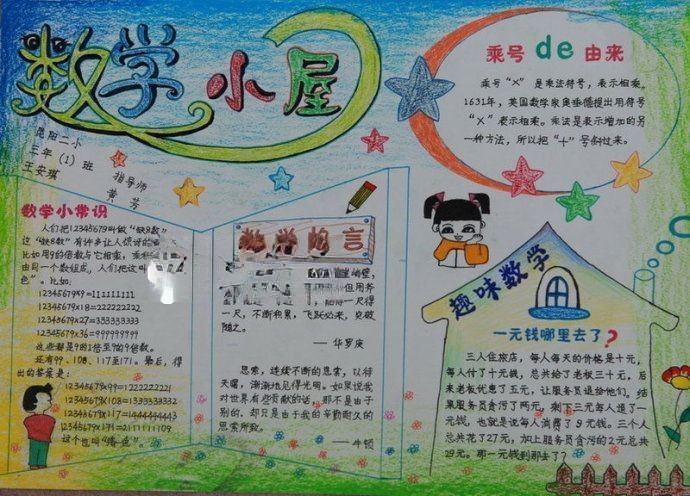 数学小屋
昆阳二小
三年(1)班
王安琪
指导师
黄芳
乘号de由来
乘号“×”是乘法符号，表示相乘。
1631年，英国数学家奥车德提出用符号
“×”表示相乘。乘法是表示增加的另
一种方法，所以把“十”号斜过来。
数学小常识
人们把12345679叫做“缺8数”
这“缺8数”有许多让人惊讶的
比如用9的倍数与它相乘，乘积
由同一个数组成，人们把这叫
色”。比如：
12345679×9=111111111
12345679×18=222222222
12345679×27=333333333
12345679×36=999999999
这些都是9的1倍至9的9倍数。
还有99、108、117至171。最后，得
出的答案是：
12345679×99=1222222221
12345679×108=1333333332
12345679×117=1444444443
12345679×171=2111111109
这个也叫“清一色”。
数学的名言
但用务
一尺得
一尺，不断积累，飞跃必来，突破
随之。
——华罗庚
思索，连续不断的思索，以待
天曙，渐渐地见得光明。如果说我
对世界有些贡献的话，那不是由于
别的，却只是由于我的辛勤耐久的
思索所致。
——牛顿
趣味数学
一元钱哪里去了？
三人住旅店，每人每天的价格是十元，
每人付了十元钱，总共给了老板三十元，后
来老板优惠了五元，让服务员退给他们。结
果服务员贪污了两元，剩下三元每人退了一
元钱，也就是说每人消费了9元钱。三个人
总共花了27元，加上服务员贪污的2元总共
29元。那一元钱到哪去了？